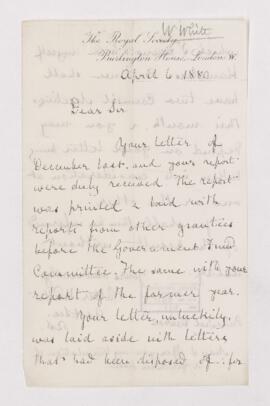 W. White
The Royal Society
Burlington House, London W.
April 6 1880
Dear Sir
Your letter of
December last and your report
were duly received. The report
was printed & laid with
reports from other grantees
before the Government Fund
Committee. The same with your
report of the former year.
Your letter, unluckily,
was laid aside with letters
that had been disposed of. for